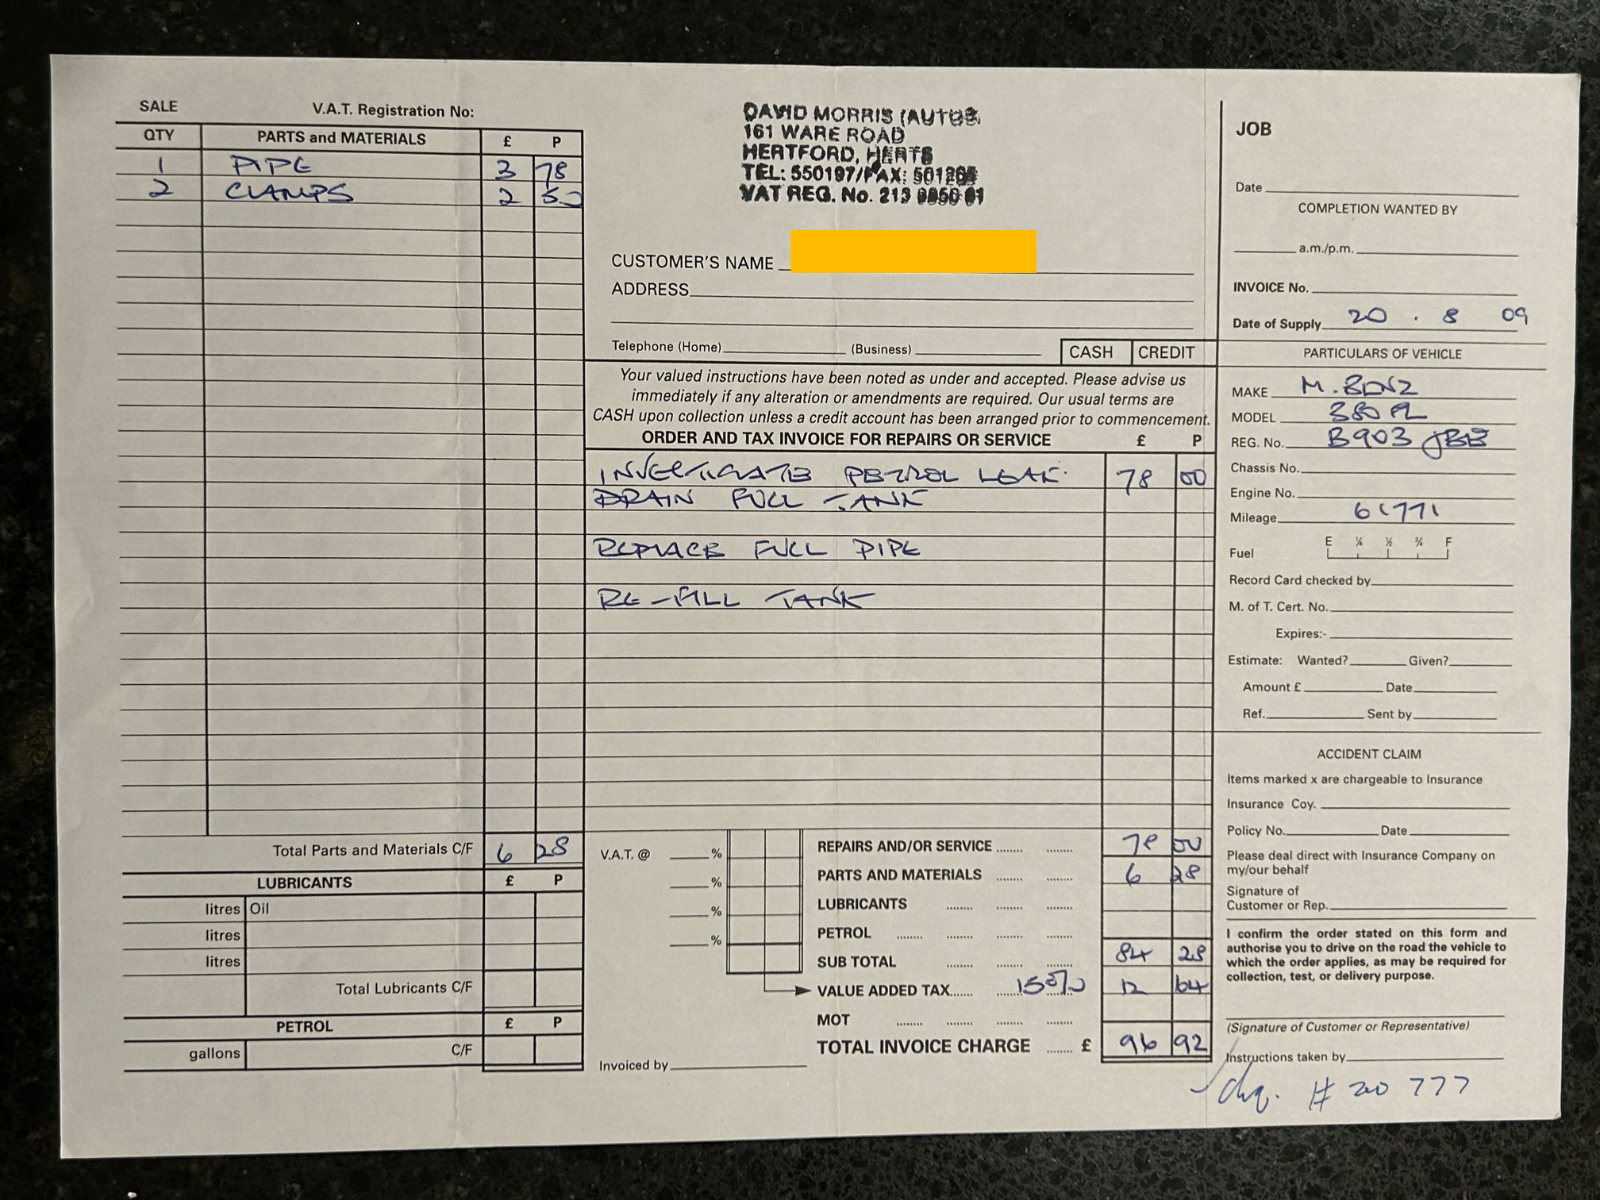 SALE V.A.T. Registration No:
QTY PARTS and MATERIALS £ P
1 PIPE 3 78
2 CLAMPS 2 50
Total Parts and Materials C/F 6 28
LUBRICANTS £ P
litres Oil
litres
litres
Total Lubricants C/F
PETROL £ P
gallons C/F
DAVID MORRIS (AUTOS
161 WARE ROAD
HERTFORD, HERTS
TEL: 550197/FAX: 501265
VAT REG. No. 213
CUSTOMER'S NAME
ADDRESS
Telephone (Home) (Business) CASH CREDIT
Your valued instructions have been noted as under and accepted. Please advise us
immediately if any alteration or amendments are required. Our usual terms are
CASH upon collection unless a credit account has been arranged prior to commencement.
ORDER AND TAX INVOICE FOR REPAIRS OR SERVICE £ P
INVESTIGATE PETROL LEAK. 78 00
DRAIN FULL TANK
REPLACE FUEL PIPE
RE-FILL TANK
V.A.T. @ %
%
%
%
REPAIRS AND/OR SERVICE 78 00
PARTS AND MATERIALS 6 28
LUBRICANTS
PETROL
SUB TOTAL 84 28
VALUE ADDED TAX 15% 12 64
MOT
TOTAL INVOICE CHARGE £ 96 92
Invoiced by
JOB
Date
COMPLETION WANTED BY
a.m./p.m.
INVOICE No.
Date of Supply 20 . 8 09
PARTICULARS OF VEHICLE
MAKE M. BENZ
MODEL 380
REG. No. B903 JBB
Chassis No.
Engine No.
Mileage 61771
E ¼ ½ ¾ F
Fuel
Record Card checked by
M. of T. Cert. No.
Expires:-
Estimate: Wanted? Given?
Amount £ Date
Ref. Sent by
ACCIDENT CLAIM
Items marked x are chargeable to Insurance
Insurance Coy.
Policy No. Date
Please deal direct with Insurance Company on
my/our behalf
Signature of
Customer or Rep.
I confirm the order stated on this form and
authorise you to drive on the road the vehicle to
which the order applies, as may be required for
collection, test, or delivery purpose.
(Signature of Customer or Representative)
Instructions taken by
chq. # 200 777